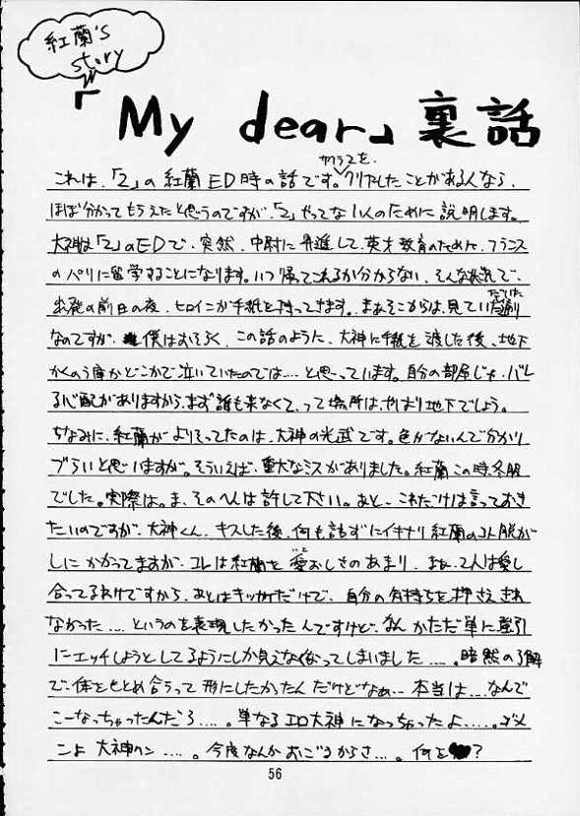 紅蘭's
story
「My dear」裏話
クリアを
これは、「2」の紅蘭ED時の話です。クリアしたことがある人なら、
ほぼ分かってもらえたと思うのですが、「2」やってない人のために説明します。
大神は「2」のEDで、突然、中尉に昇進して、英才教育のために、フランス
のパリに留学することになります。いつ帰ってこれるか分からない、そんな状態で、
出発の前日の夜、ヒロインが手紙を持ってきます。まぁそこからは、見ていただいた通り
なのですが、僕はおそらく、この話のように、大神に手紙を渡した後、地下
かくのう庫かどこかで泣いていたのでは…と思っています。自分の部屋じゃ、バレ
る心配がありますから、まず誰も来なくて、って場所は、やはり地下でしょう。
ちなみに、紅蘭がよりそってたのは、大神の光武です。色がないんで分かり
づらいと思いますが。そういえば、重大なミスがありました。紅蘭この時、冬服
でした。実際は。ま、そのへんは許して下さい。あと、これだけは言っておき
たいのですが、大神くん、キスした後、何も話さずにイキナリ紅蘭のコト脱が
しにかかってますが、コレは紅蘭を愛おしさのあまり、まぁ、2人は愛し
合ってるわけですから、あとはキッカケだけで、自分の気持ちを押さえきれ
なかった…というのを表現したかったんですけど、なんかただ単に強引
にエッチしようとしてるようにしか見えなくなってしまいました…。暗黙の了解
で、体をもとめ合うって形にしたかったんだけどなぁ…本当は…なんで
こーなっちゃったんだろ…。単なるエロ大神になっちゃったよ…。ゴメ
ンよ 大神クン…。今度なんかおごるからさ…。何を?
56